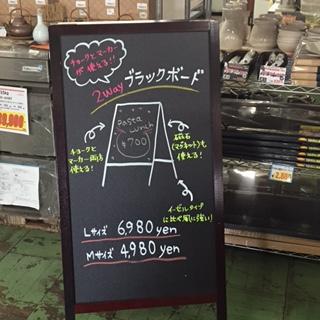 チョークとマーカー
が使える!!
2way ブラックボード
Pasta
Lunch
¥700
チョークと
マーカー両方
使える!
磁石
(マグネット)も
使える!
イーゼルタイプ
に比べ風に強い!
Lサイズ 6,980 yen
Mサイズ 4,980 yen